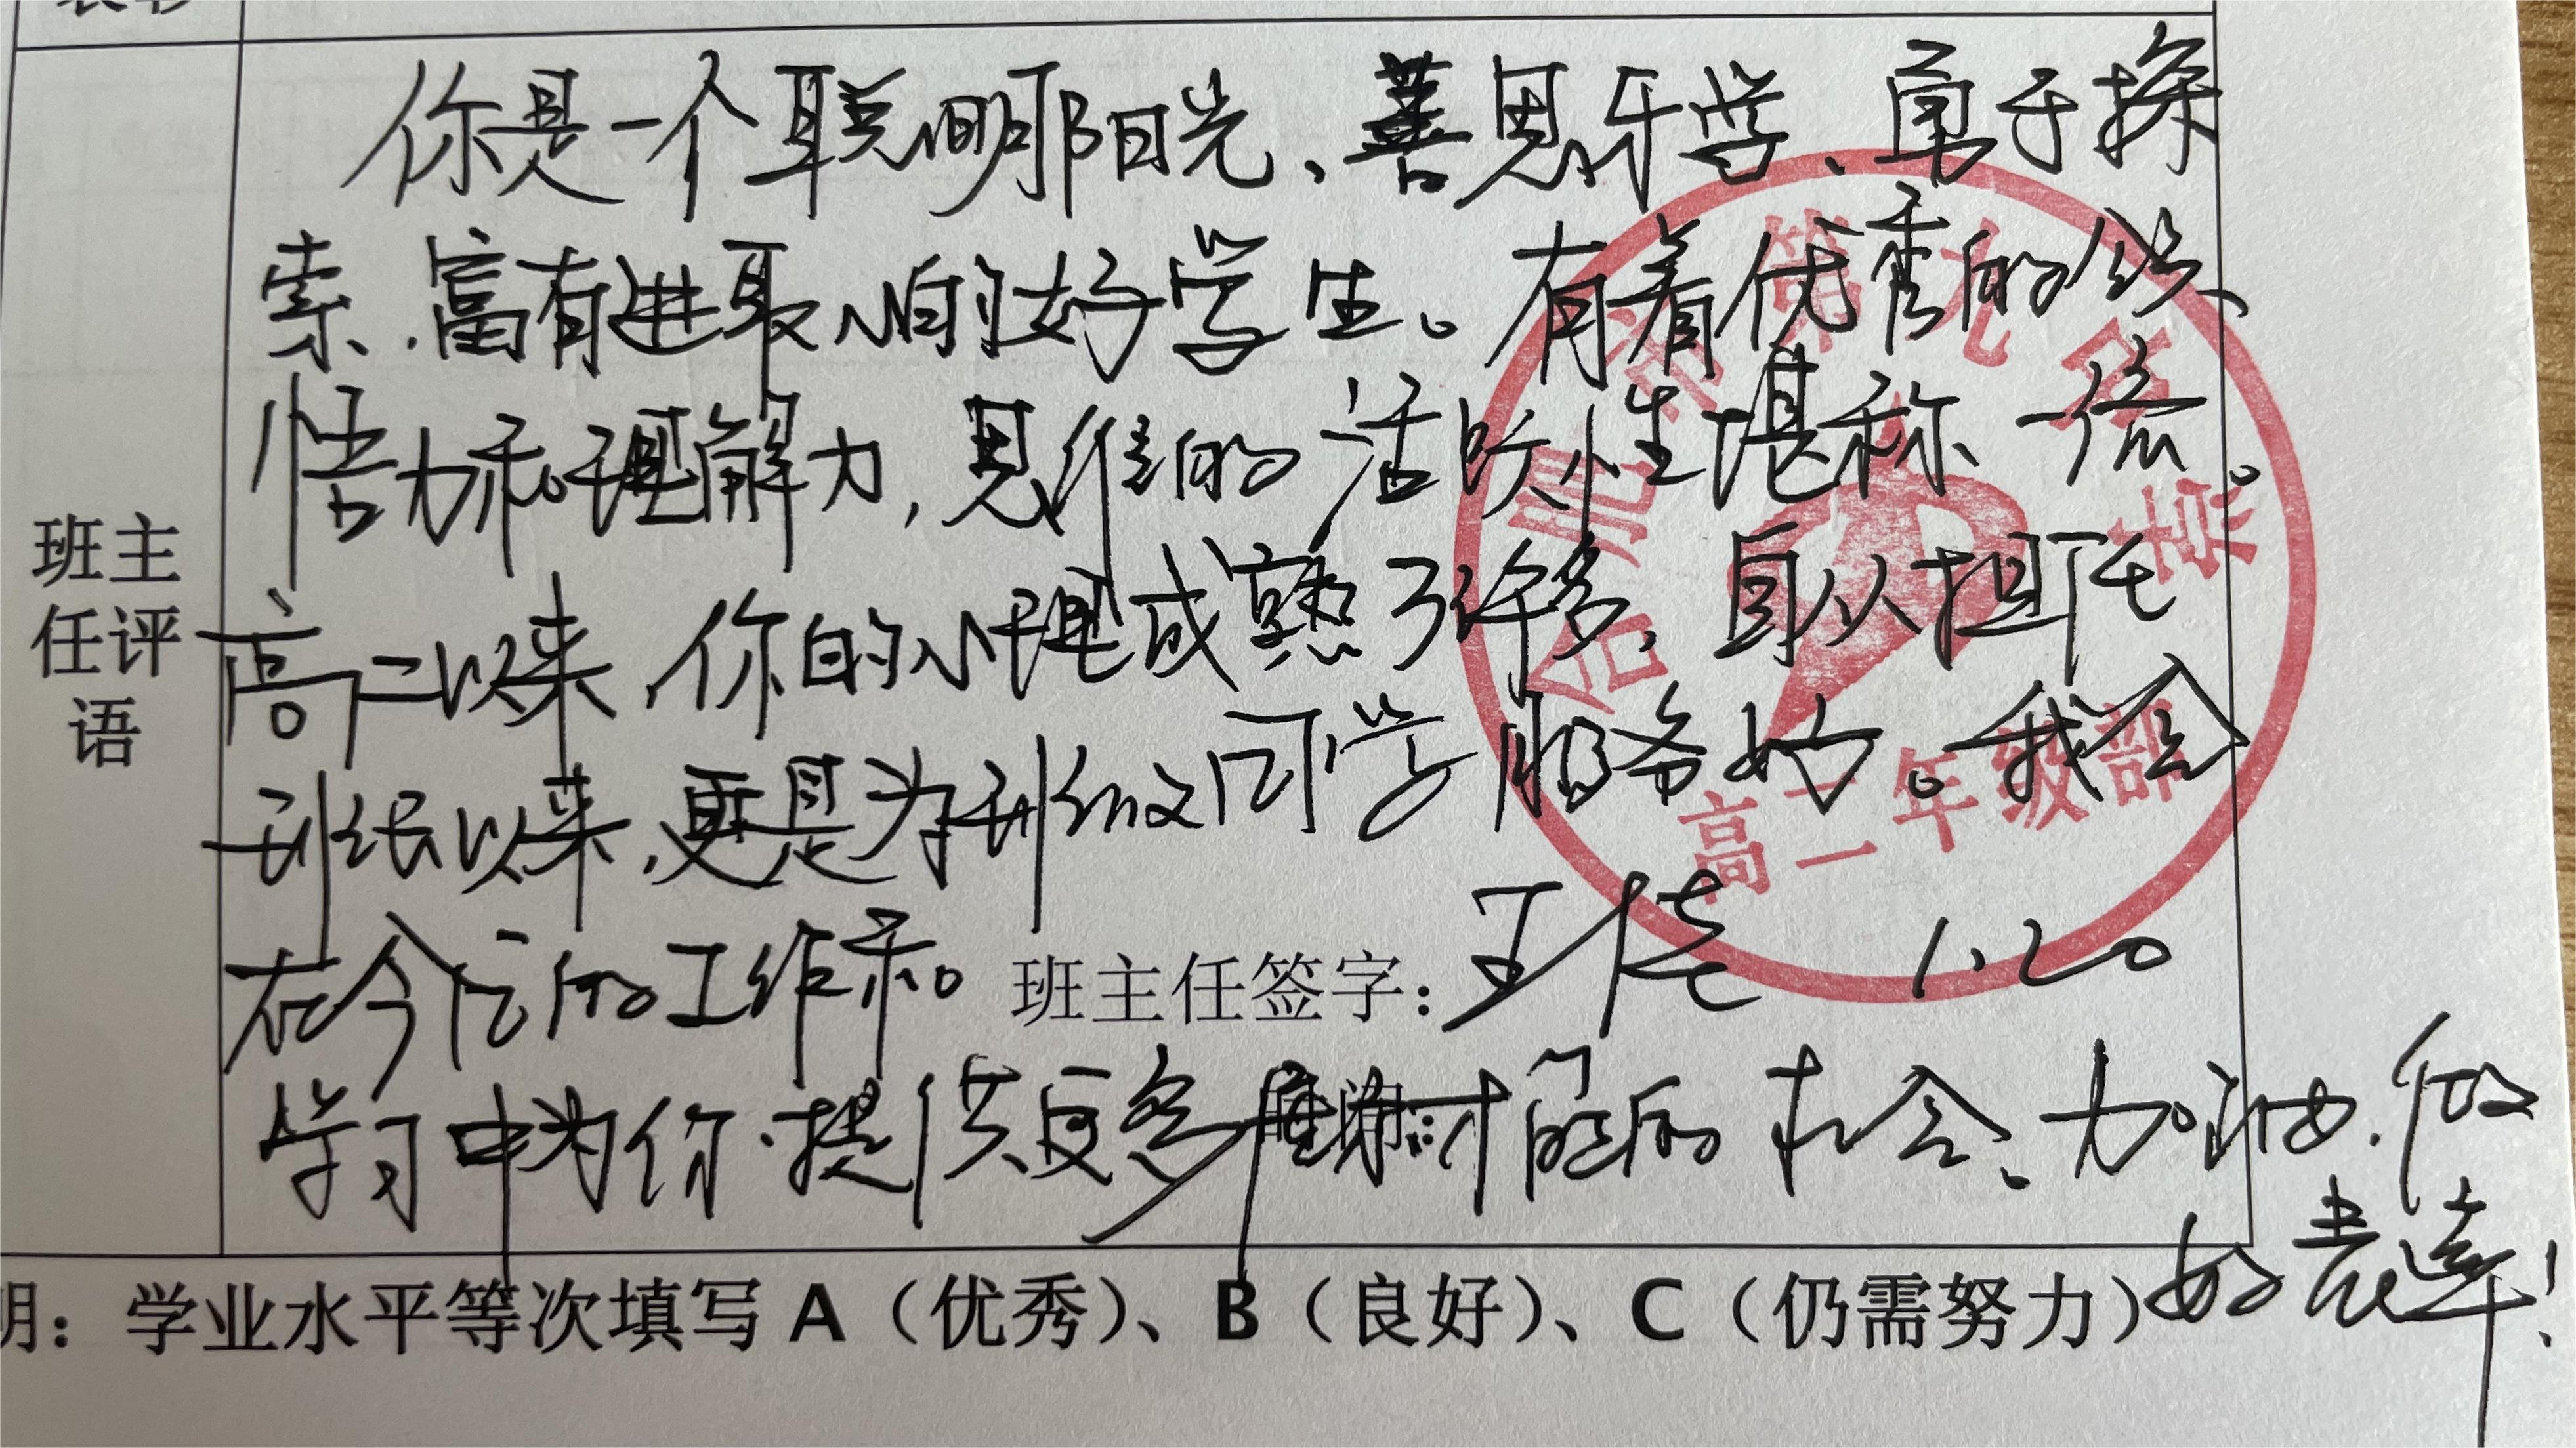 你是一个聪明阳光、善思乐学、勇于探
索、富有进取心的好学生。有着优秀的
悟力和理解力，思维的活跃性堪称一流。
高二以来，你的心理成熟了许多，自从担任
班长以来，更是为班级同学服务好。我会
在今后的工作和
班主任签字：王 1.20
学习中为你提供更多展才能的机会、加油，做
好表率！
班主
任评
语
合肥市第九中学
高二年级部
明：学业水平等次填写 A（优秀）、B（良好）、C（仍需努力）